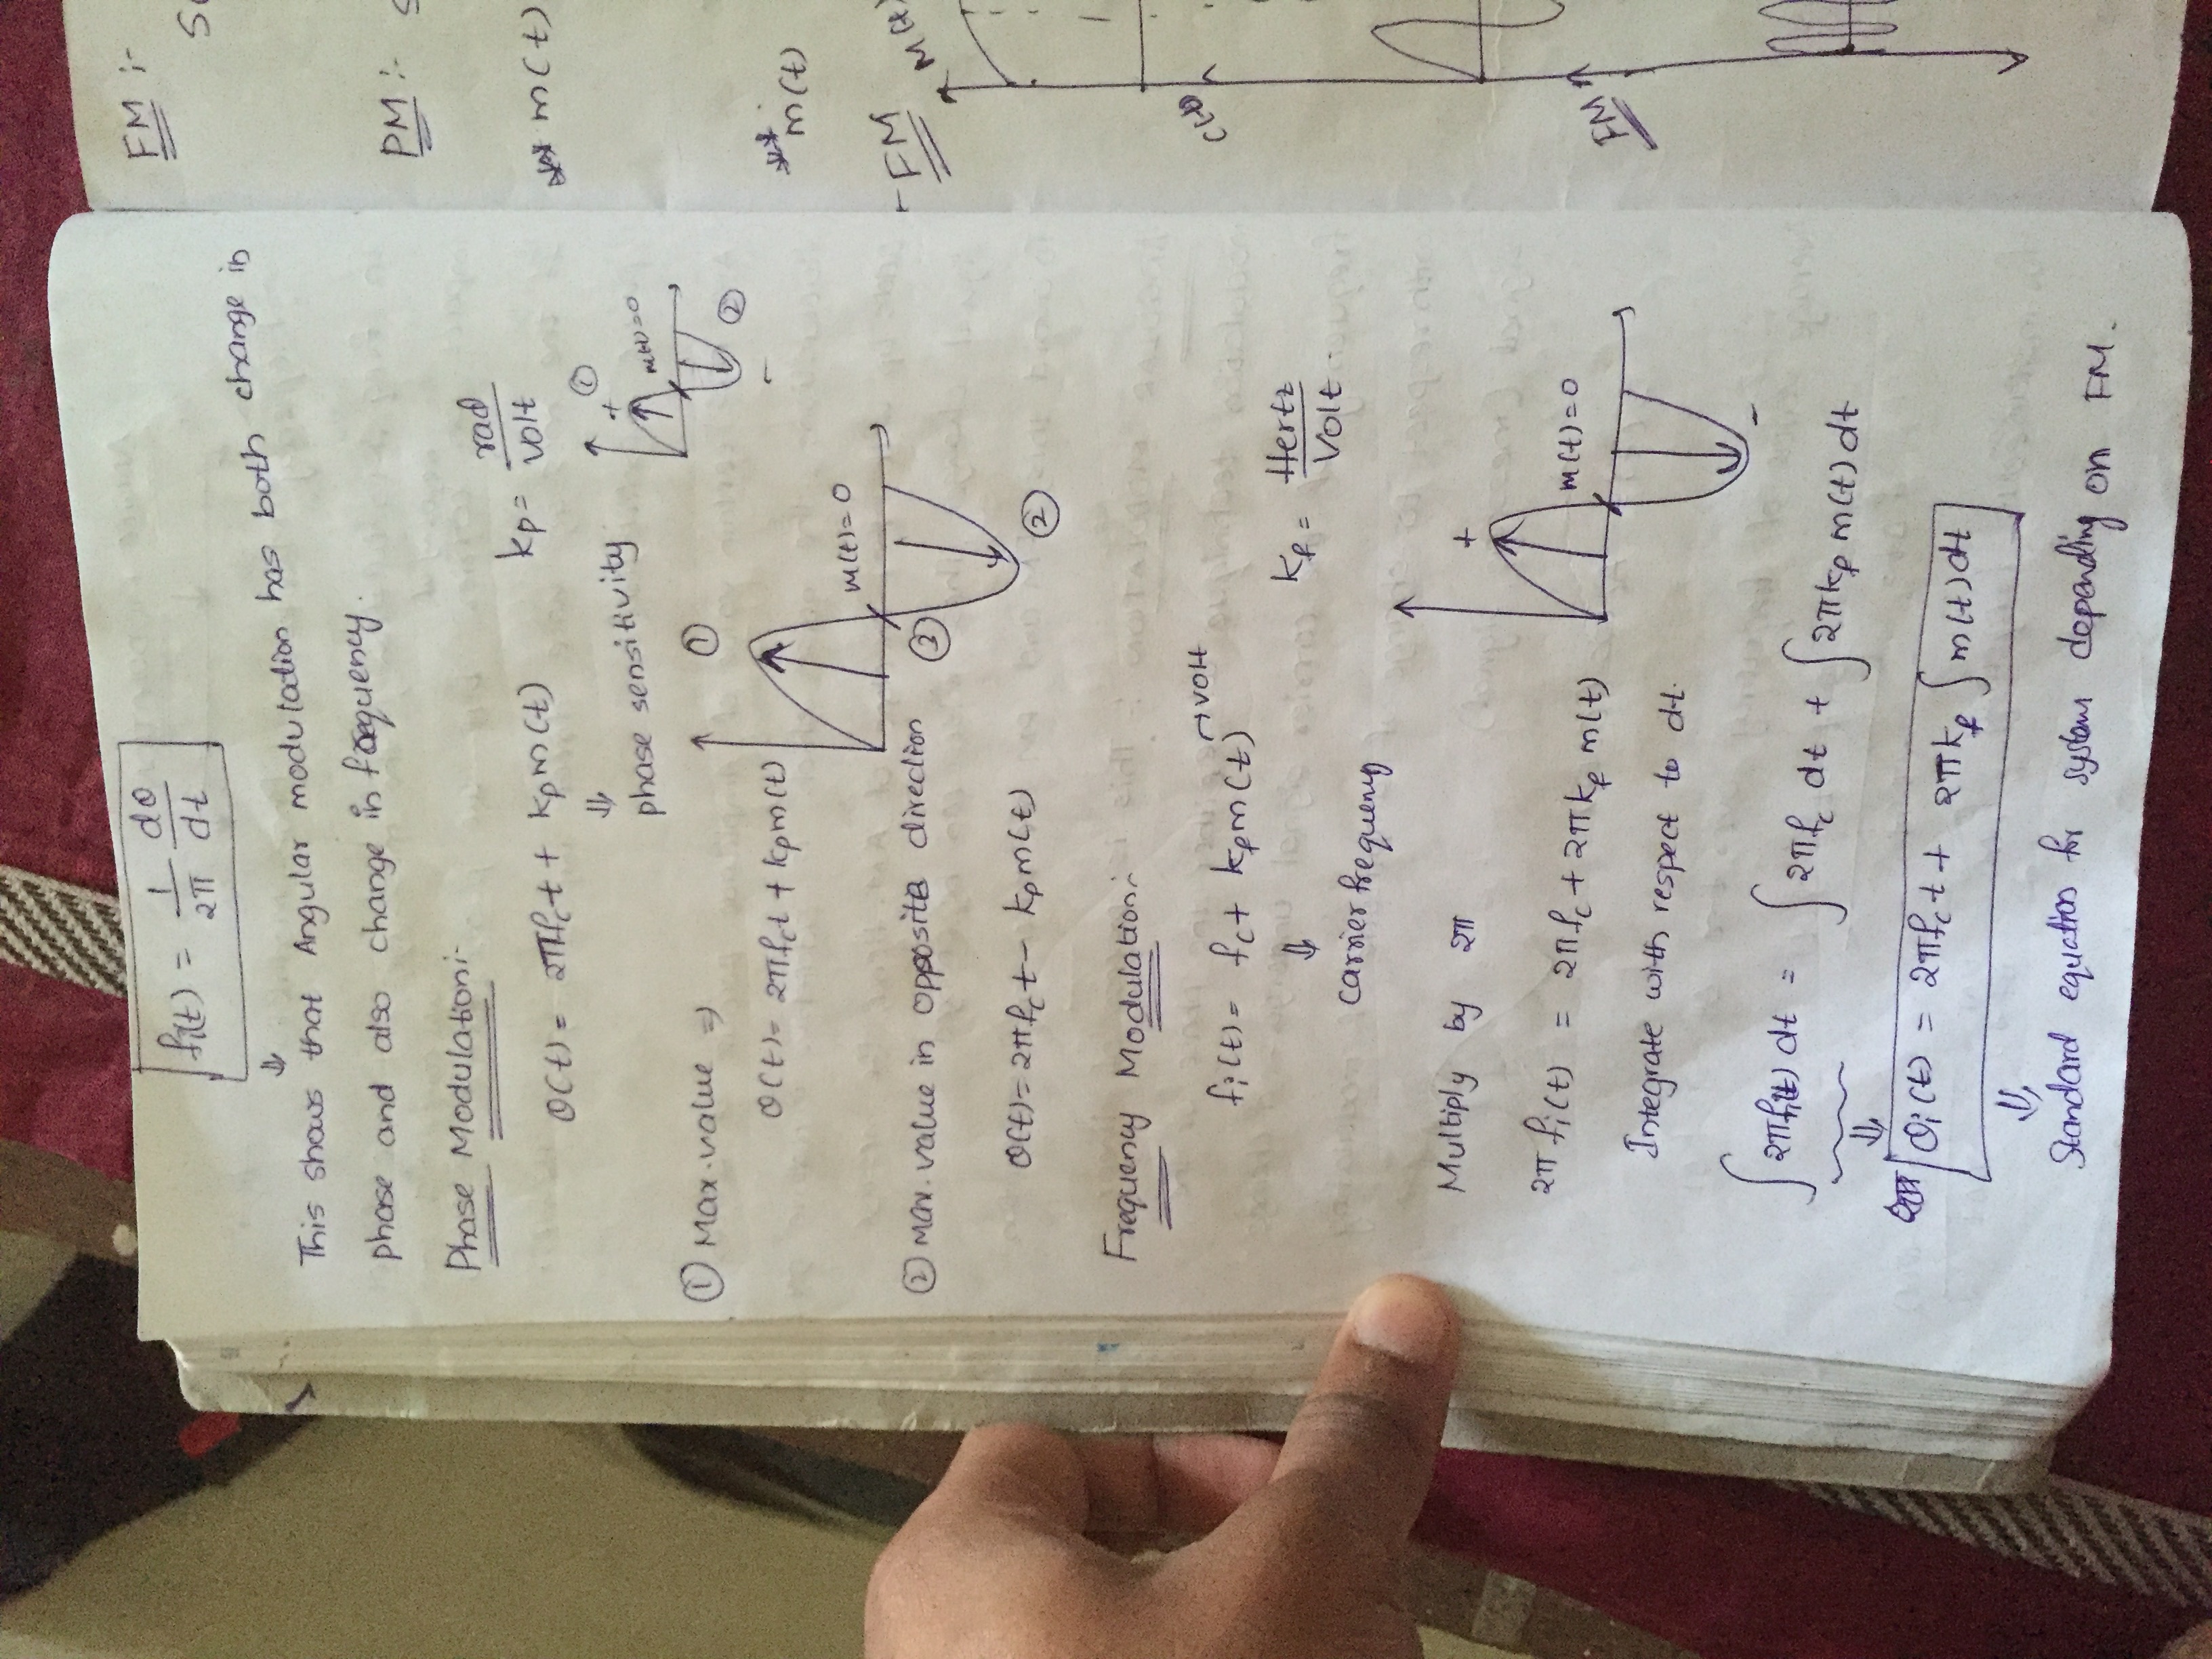 fi(t) = 1/2π dθ/dt
⇓
This shows that Angular modulation has both change in
phase and also change in frequency.
Phase Modulation:-
θ(t) = 2πfct + kpm(t)
kp = rad/volt
⇓
phase sensitivity
①
+
m(t)=0
②
-
① Max.value ⇒
θ(t)= 2πfct + kpm(t)
①
m(t)=0
③
②
② Max. value in opposite direction
θ(t)=2πfct - kpm(t)
Frequency Modulation:-
fi(t) = fc + kfm(t) → volt
⇓
carrier frequency
kf = Hertz/Volt.
Multiply by 2π
2π fi(t) = 2πfc + 2πkf m(t)
+
m(t)=0
-
Integrate with respect to dt.
∫2πfi(t) dt = ∫2πfc dt + ∫2πkf m(t) dt
⇓
θi(t) = 2πfct + 2πkf ∫m(t)dt
⇓
Standard equation for system depending on FM.
FM :-
PM :-
** m(t)
** m(t)
- FM
M(t)
C(t)
FM